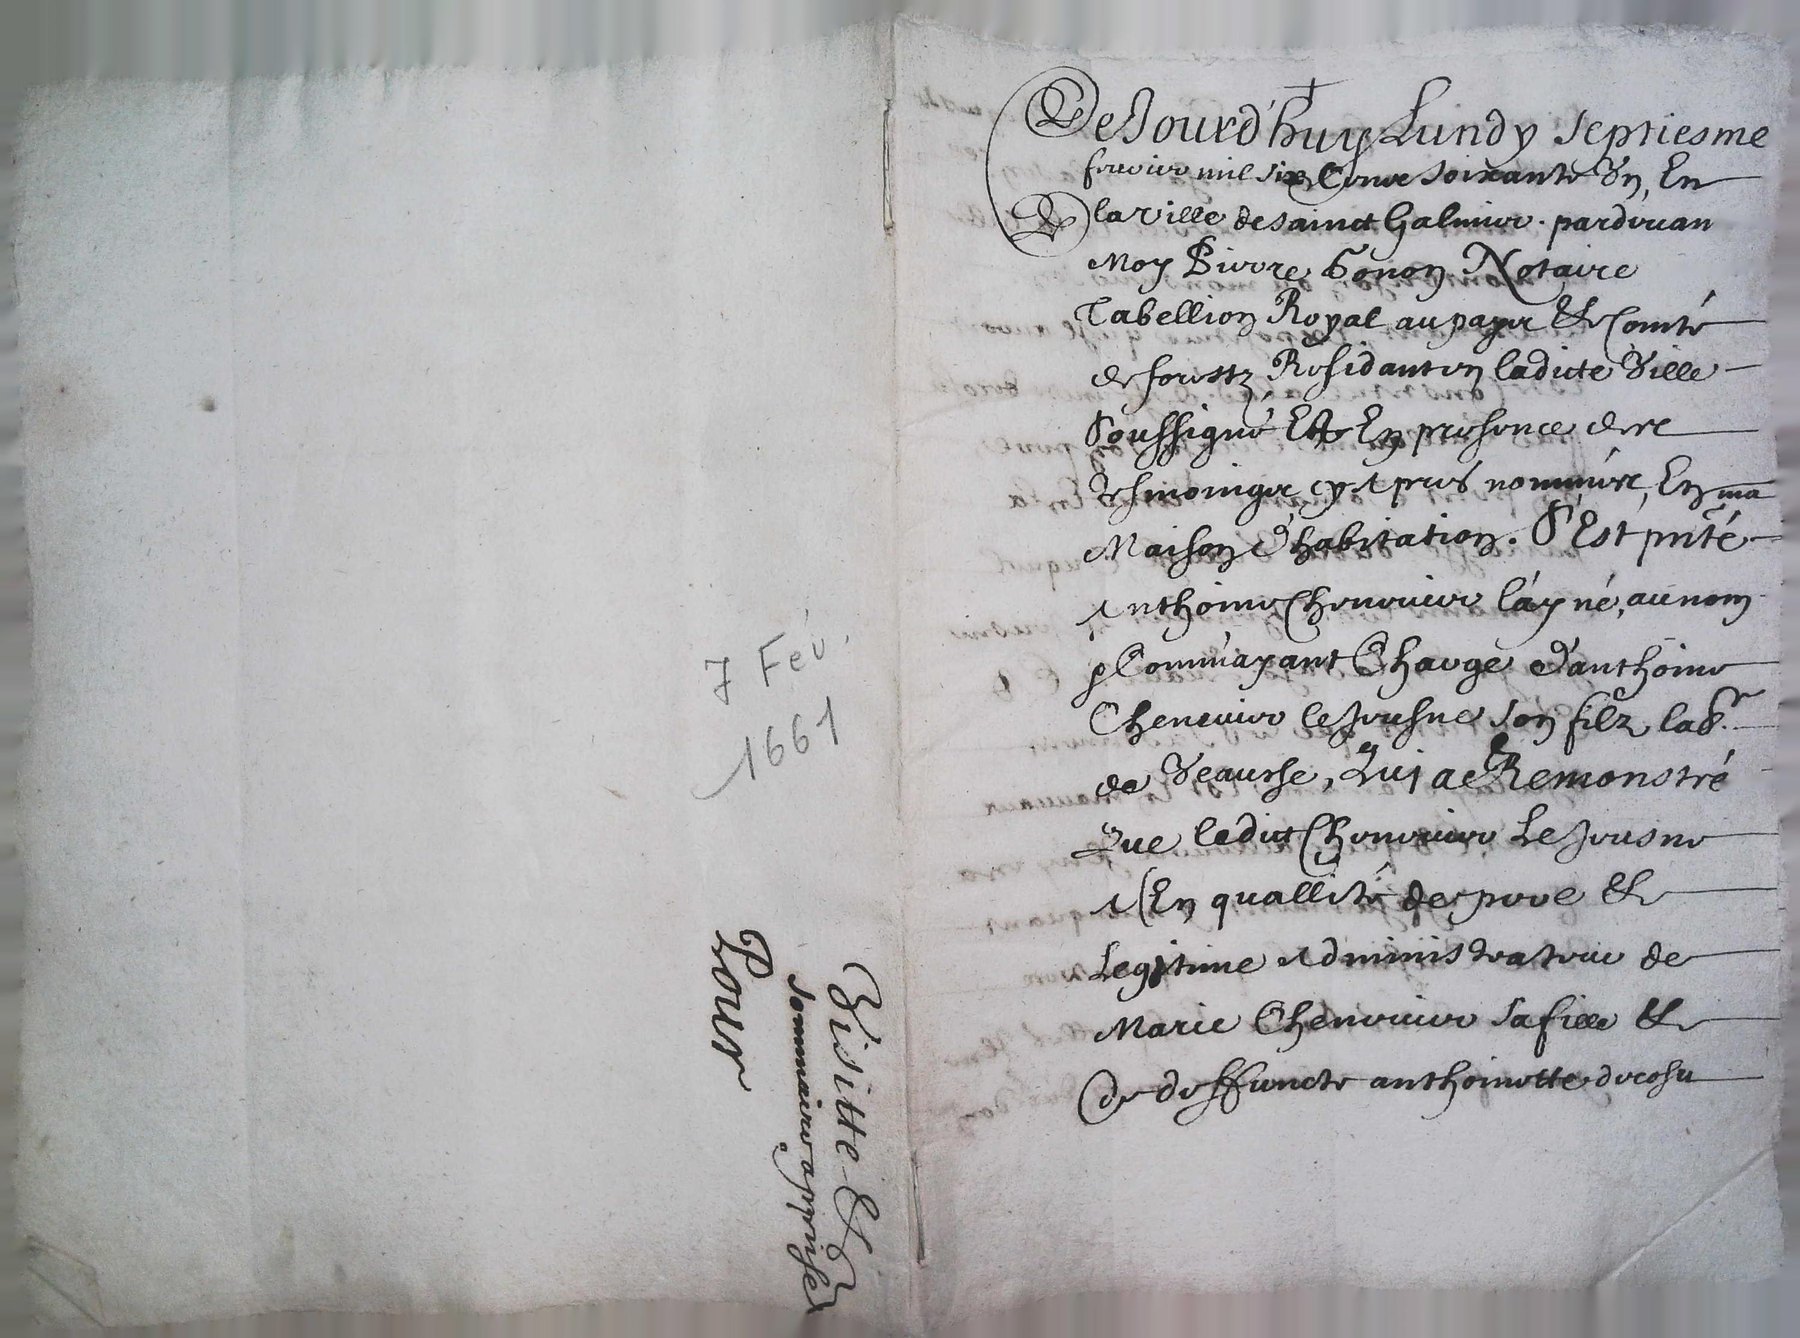 7 Fev.
1661
Visitte &
sommaire apprise
Pour
Cejourd'huy Lundy septiesme
febvrier mil six Cens soixante Un, En
la ville de sainct Galmier. pardevan
Moy Pierre Gonon Notaire
Tabellion Royal au pays & Comté
de forestz Residant en ladicte Ville
Soussigné Et En presence des
tesmoings cy apres nommés, En ma
Maison d'habitation. S'Est pnté
Anthoine Chenevier l'ayné, au nom
& Comm'ayant Charge d'anthoine
Chenevier le Jeusne son filz lab.r
de Veausse, Qui a Remonstré
Que ledict Chenevier Le Jeusne
En quallité de pere &
Legitime Administrateur de
Marie Chenevier sa fille &
de deffuncte anthoinette